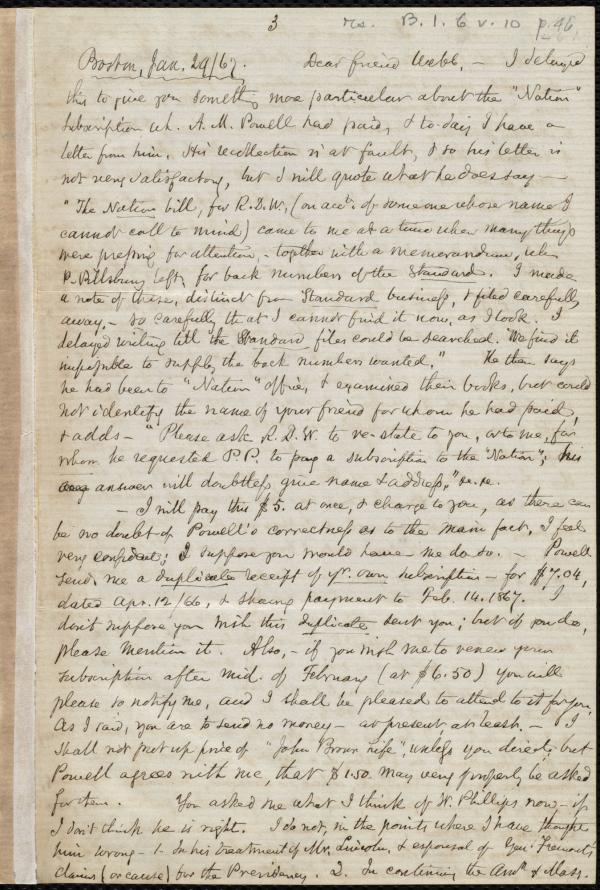 3 Ms. B. 1. 6 v. 10 p. 46
Boston, Jan. 29/67. Dear friend Webb, — I delayed
this to give you something more particular about the "Nation"
subscription wh. A. M. Powell had paid, & to-day I have a
letter from him. His recollection is at fault, & so his letter is
not very satisfactory, but I will quote what he does say —
"The Nation bill, for R. D. W., (on acct. of someone whose name I
cannot call to mind) came to me at a time when many things
were pressing for attention, together with a memorandum, when
P. Pillsbury left, for back numbers of the Standard. I made
a note of these, distinct from Standard business, & filed carefully
away, — so carefully that I cannot find it now, as I look. I
delayed writing till the Standard files could be searched. We find it
impossible to supply the back numbers wanted." He then says
he had been to "Nation" office, & examined their books, but could
not identify the name of your friend for whom he had paid,
& adds — "Please ask R. D. W. to re-state to you, or to me, for
whom he requested P. P. to pay a subscription to the "Nation"; his
answer will doubtless give name & address," &c. &c.
— I will pay this $5. at once, & charge to you, as there can
be no doubt of Powell's correctness as to the main fact, I feel
very confident; I suppose you would have me do so. — Powell
sends me a duplicate receipt of yr. own subscription — for $7.04,
dated Apr. 12/66, & showing payment to Feb. 14. 1867. I
don't suppose you wish this duplicate sent you; but if you do,
please mention it. Also, — if you wish me to renew your
subscription after mid. of February (at $6.50) you will
please so notify me, and I shall be pleased to attend to it for you.
As I said, you are to send no money — at present at least. — I
shall not put up price of "John Brown Life", unless you direct; but
Powell agrees with me, that $1.50 may very properly be asked
for them. You asked me what I think of W. Phillips now — if
I don't think he is right. I do not, in the points where I have thought
him wrong — 1. In his treatment of Mr. Lincoln, & espousal of Gen. Fremont's
claims (or cause) for the Presidency. 2. In continuing the Amn. & Mass.